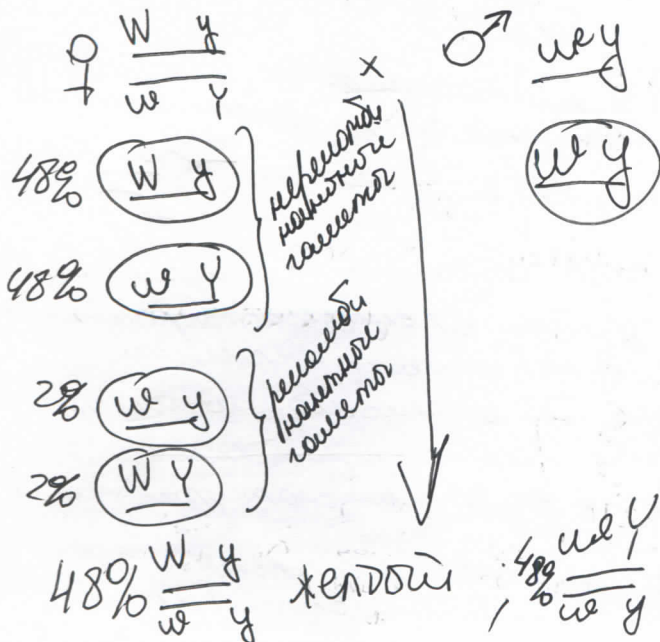 ♀ W y × ♂ w y
w Y
48% W y w y
48% w Y
нерекомбинантные гаметы
2% w y
2% W Y
рекомбинантные гаметы
48% W y желтый, 48% w Y
w y w y